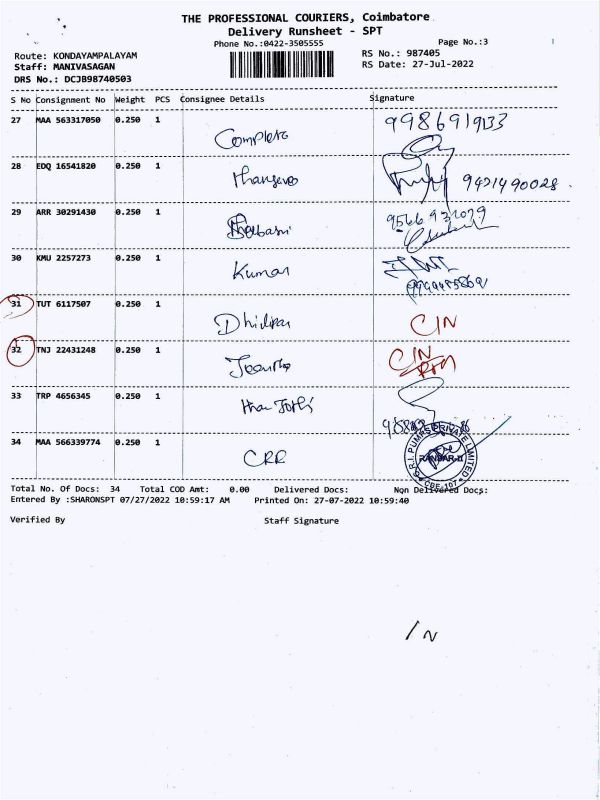 THE PROFESSIONAL COURIERS, Coimbatore
Delivery Runsheet - SPT
Phone No.:0422-3505555 Page No.:3
Route: KONDAYAMPALAYAM RS No.: 987405
Staff: MANIVASAGAN RS Date: 27-Jul-2022
DRS No.: DCJB98740503
S No Consignment No Weight PCS Consignee Details Signature
27 MAA 563317050 0.250 1
28 EDQ 16541820 0.250 1
29 ARR 30291430 0.250 1
30 KMU 2257273 0.250 1 Kumar
31 TUT 6117507 0.250 1 CIN
32 TNJ 22431248 0.250 1 CIN
33 TRP 4656345 0.250 1
34 MAA 566339774 0.250 1 CRR
Total No. Of Docs: 34 Total COD Amt: 0.00 Delivered Docs: Non Delivered Docs:
Entered By :SHARONSPT 07/27/2022 10:59:17 AM Printed On: 27-07-2022 10:59:40
Verified By Staff Signature